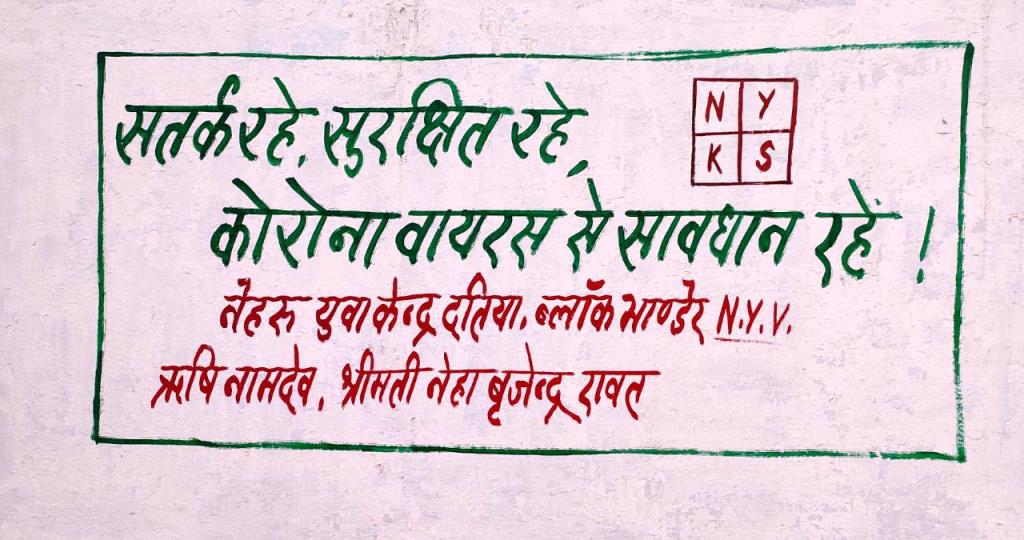 सतर्क रहे, सुरक्षित रहे,
N Y
K S
कोरोना वायरस से सावधान रहें !
नेहरू युवा केन्द्र दतिया, ब्लॉक भाण्डेर N.Y.V.
ऋषि नामदेव, श्रीमती नेहा बृजेन्द्र रावत